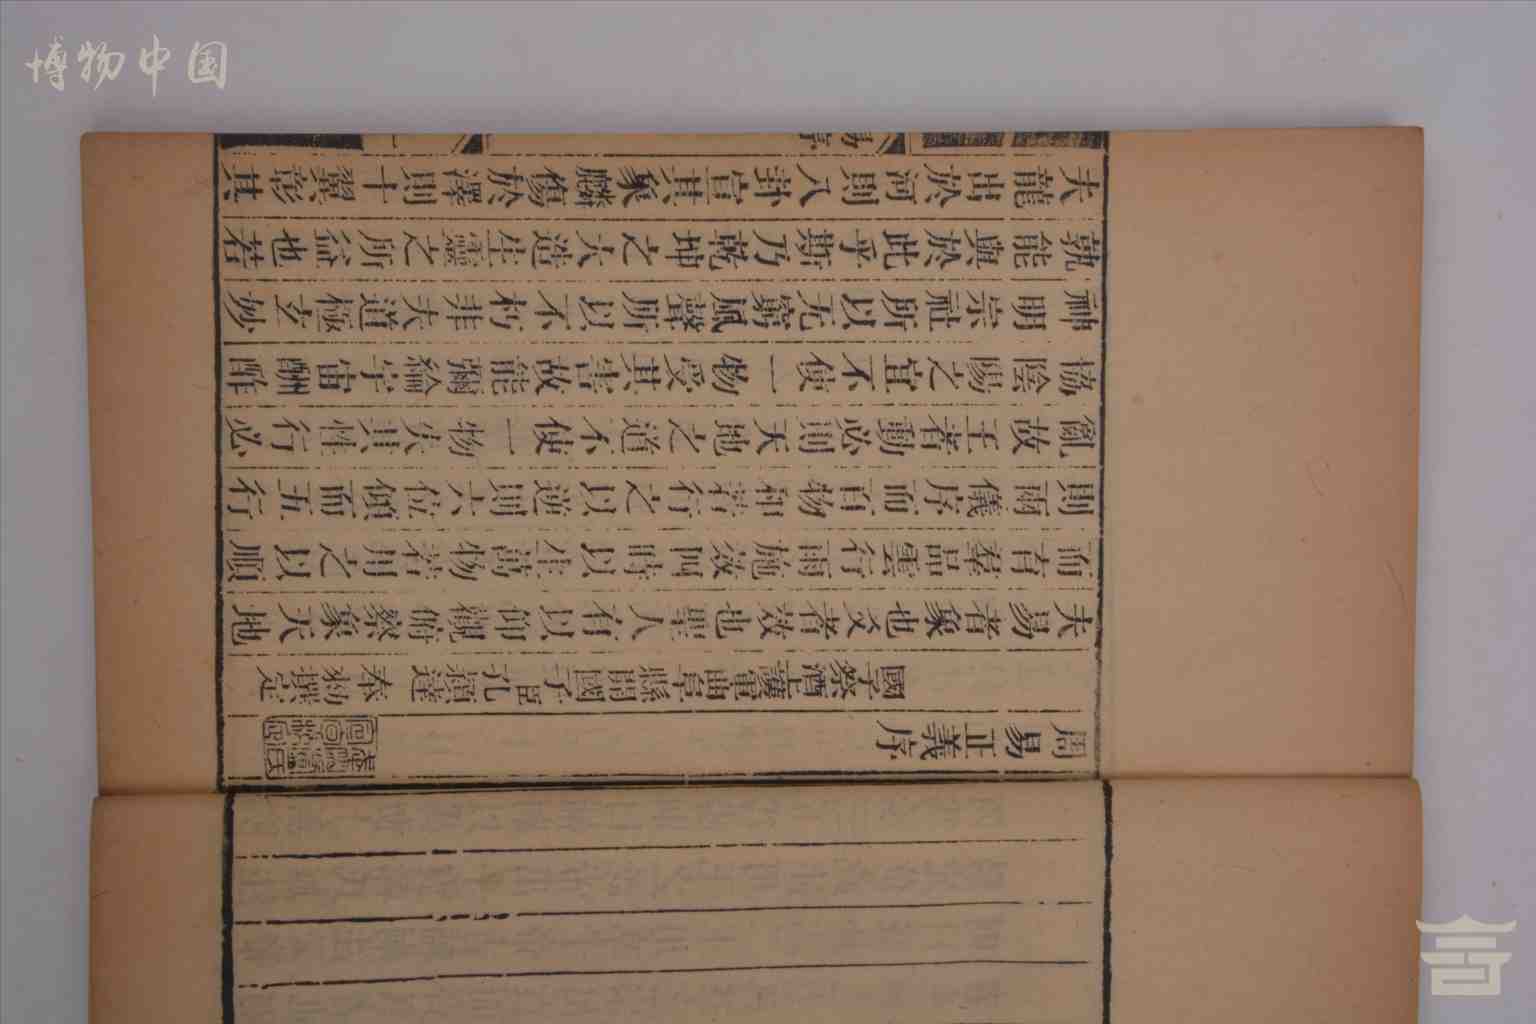 博物中国
周易正義序
國子祭酒上護軍曲阜縣開國子臣孔穎達奉勑撰定
夫易者象也爻者效也聖人有以仰觀俯察象天地
而育羣品雲行雨施效四時以生萬物若用之以順
則兩儀序而百物和若行之以逆則六位傾而五行
亂故王者動必則天地之道不使一物失其性行必
協陰陽之宜不使一物受其害故能彌綸宇宙酬酢
神明宗社所以无窮風聲所以不朽非夫道極玄妙
孰能與於此乎斯乃乾坤之大造生靈之所益也若
夫龍出於河則八卦宣其象麟傷於澤則十翼彰其
易序
一